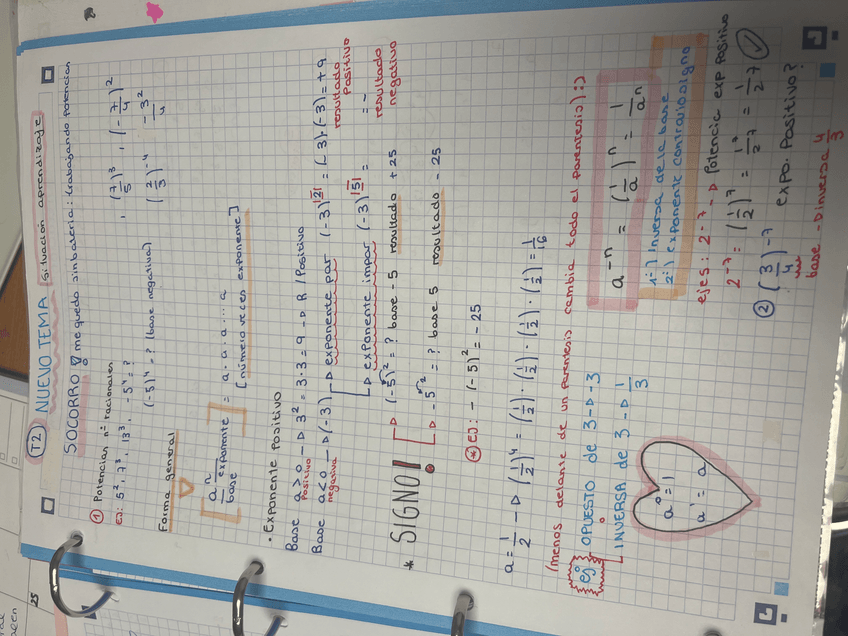 T2 NUEVO TEMA (situación aprendizaje)
SOCORRO me quedo sin batería: trabajando potencias
① Potencias nº racionales
ej: 5², 7³, 13³, -5⁴ = ? , (7/5)³ , (-7/4)²
(-5)⁴ = ? (base negativa) (2/3)⁻⁴ -3²/4
Forma general
aⁿ exponente = a · a · a · ... a
base [número veces exponente]
· Exponente positivo
Base a>0 → 3² = 3·3 = 9 → R / Positivo
positiva
Base a<0 → (-3) → exponente par (-3)|2| = (-3)·(-3) = +9
negativa resultado positivo
→ exponente impar (-3)|5| = = -
resultado negativo
* SIGNO! → (-5)² = ? base -5 resultado +25
→ -5² = ? base 5 resultado -25
* ej: -(-5)² = -25
a = 1/2 → (1/2)⁴ = (1/2)·(1/2)·(1/2)·(1/2) = 1/16
(menos delante de un parentesis cambia todo el parentesis) :)
ej OPUESTO de 3 → -3
INVERSA de 3 → 1/3
a⁰ = 1
a¹ = a
a⁻ⁿ = (1/a)ⁿ = 1/aⁿ
1º) Inversa de la base
2º) exponente contrario signo
ejes: 2⁻⁷ → Potencia exp positivo
2⁻⁷ = (1/2)⁷ = 1⁷/2⁷ = 1/2⁷
② (3/4)⁻⁷ expo. Positivo?
base → inversa 4/3
25